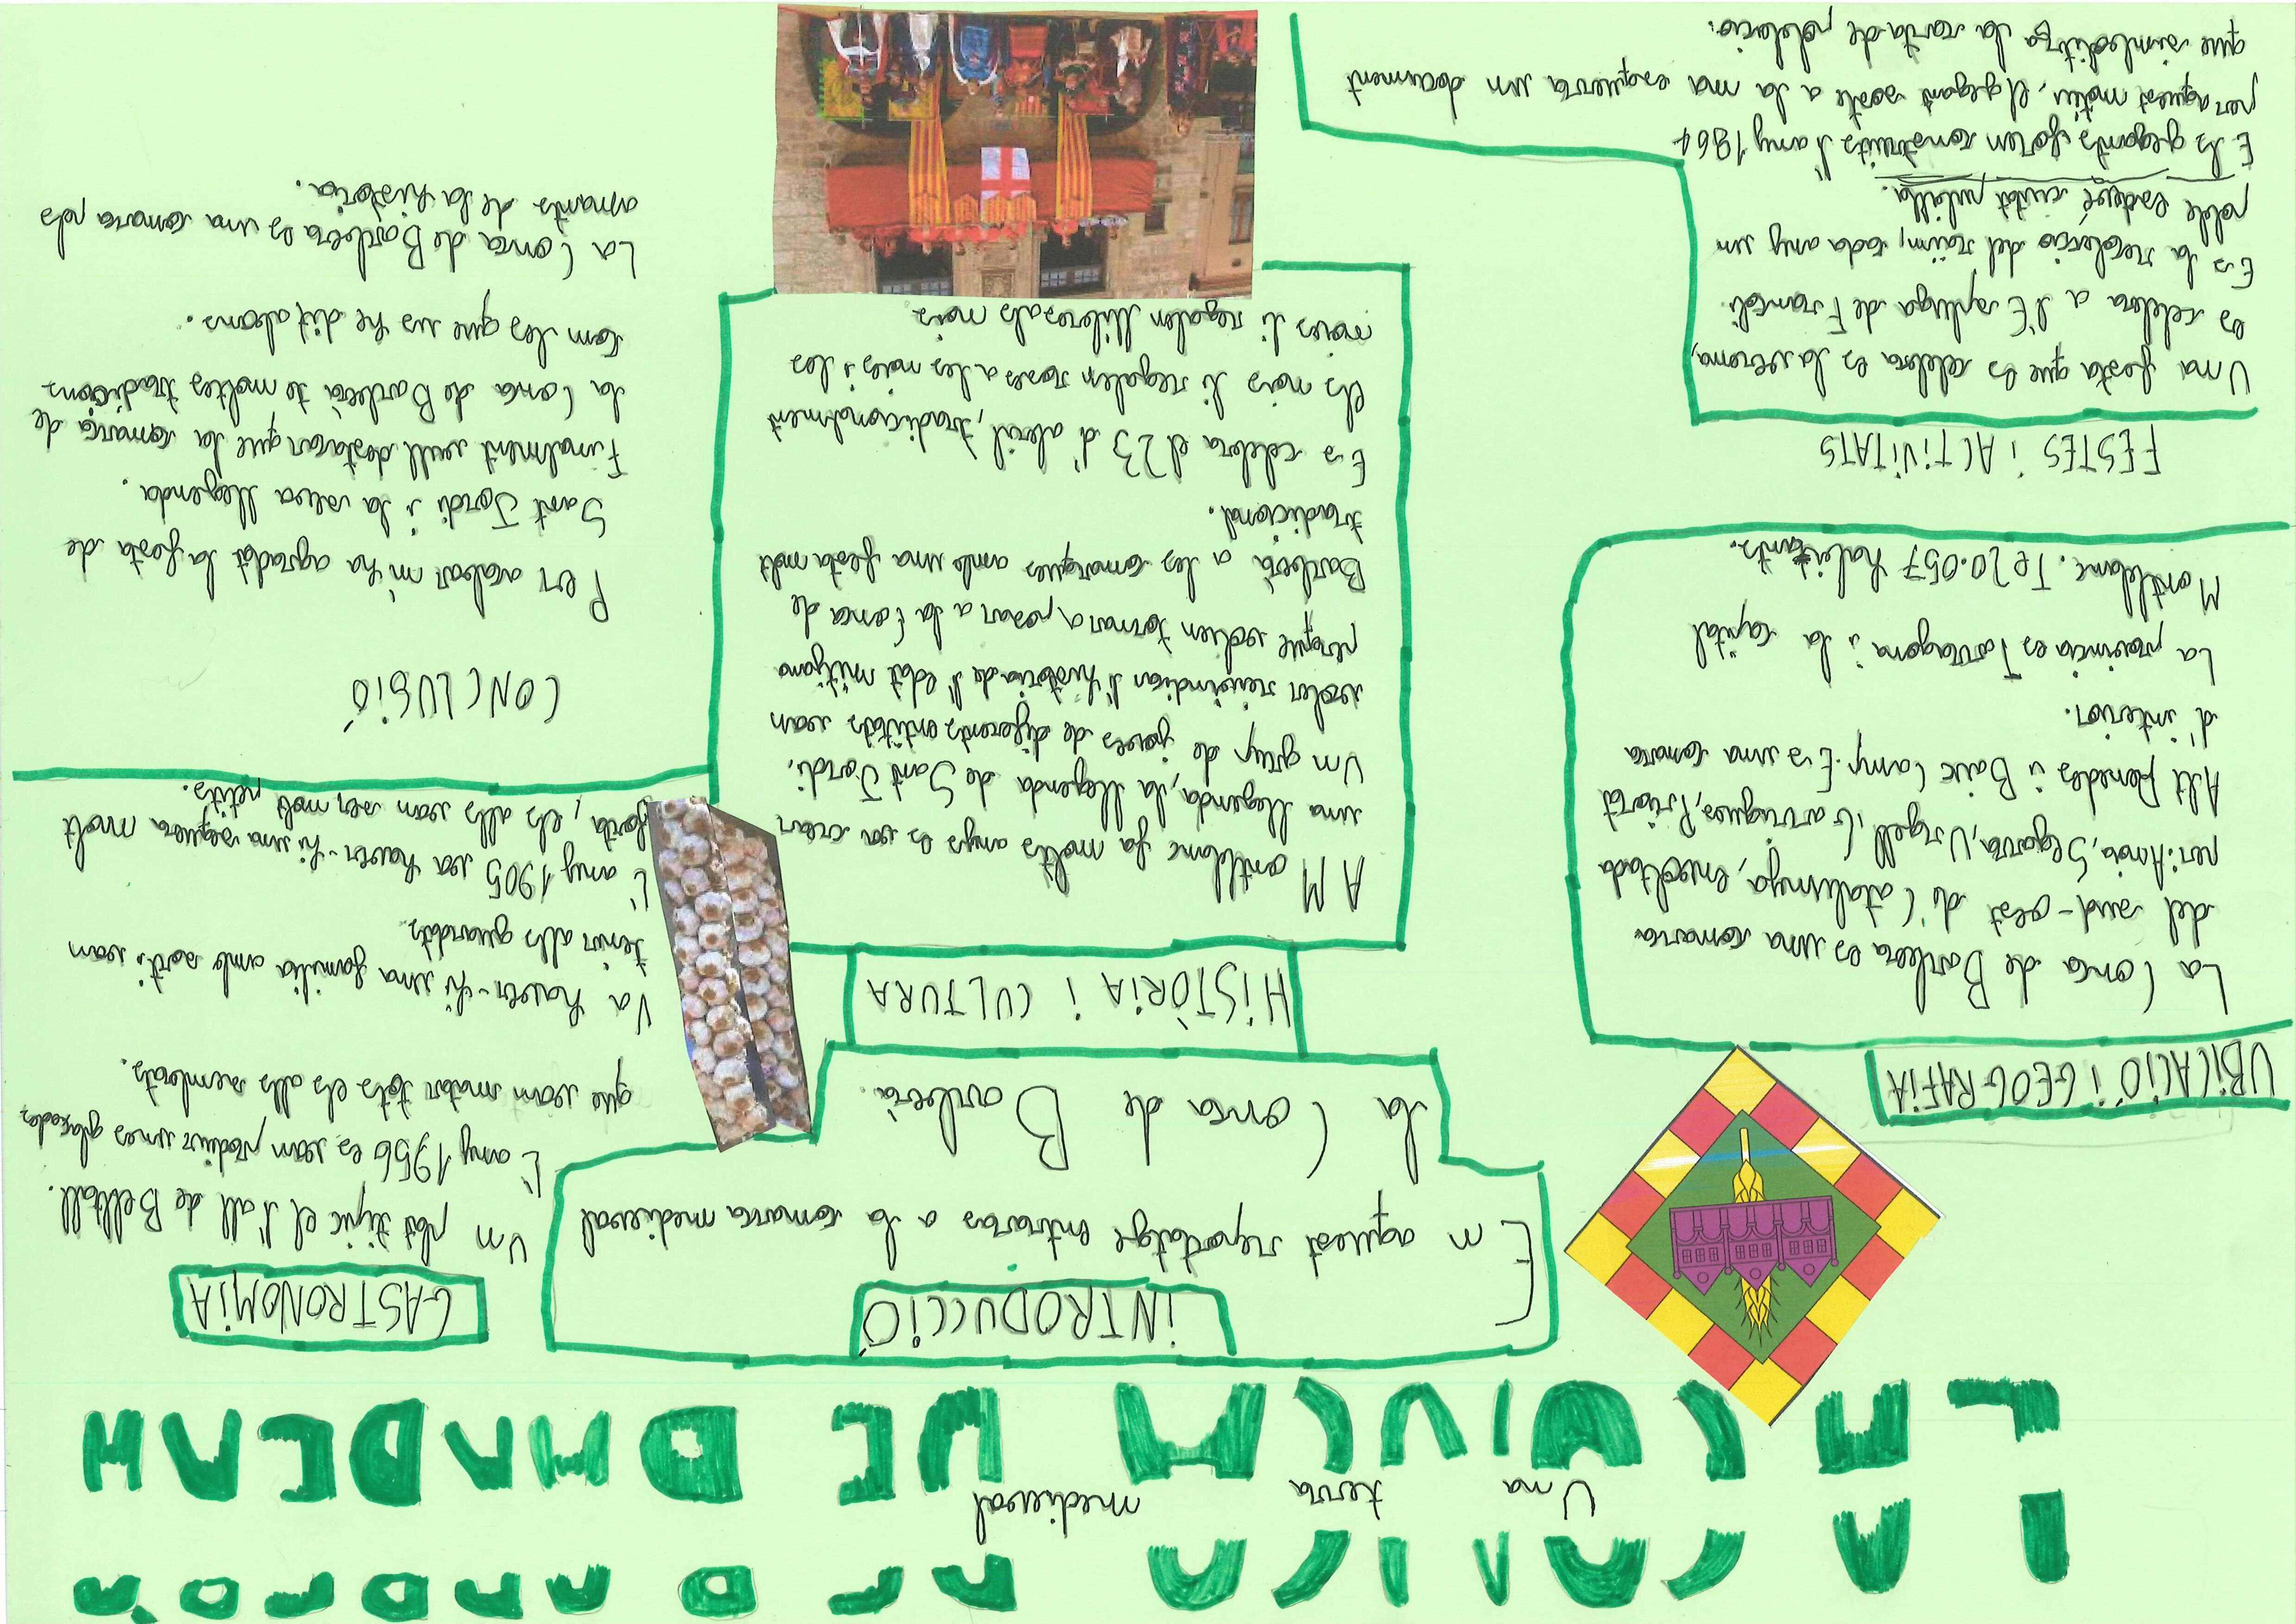 LA CONCA DE BARBERÀ
Una terra medieval
INTRODUCCIÓ
En aquest reportatge entraras a la comarca medieval
la Conca de Barberà.
UBICACIÓ i GEOGRAFIA
La Conca de Barbera es una comarca
del sud-oest di Catalunya, envoltada
per: Anoia, Segarra, Urgell, Garrigues, Priorat
Alt Penedes i Baix Camp. Es una comarca
d'interior.
La provincia es Tarragona i la capital
Montblanc. Te 20.057 habitants.
FESTES i ACTIVITATS
Una festa que es celebra es la verema,
es celebra a l'Espluga de Francoli.
Es la recolecio del raïm, cada any un
poble esdevé ciutat pubilla.
Els gegants foren construits l'any 1864
per aquest motiu, el gegant soste a la ma esquerra un document
que simbolitza la carta de poblacio.
HISTÒRIA i CULTURA
A Montblanc fa molts anys es va crear
una llegenda, la llegenda de Sant Jordi.
Un grup de joves de diferents entitats van
voler reivindicar l'història de l'edat mitjana
perque volien tornar a posar a la Conca de
Barberà a les comarques amb una festa molt
tradicional.
Es celebra el 23 d'abril, tradicionalment
els nois li regalen roses a les noies i les
noies li regalen llibres als nois.
GASTRONOMIA
Un plat tipic el l'all de Belltall.
L'any 1956 es van produir unes glaçades
que van matar tots els alls sembrats.
Va haver-hi una familia amb sort i van
tenir alls guardats.
L'any 1905 va haver-hi una sequera molt
forta, els alls van ser molt petits.
CONCLUSIÓ
Per acabar m'ha agradat la festa de
Sant Jordi i la seva llegenda.
Finalment vull destacar que la comarca de
la Conca de Barberà te moltes tradicions
com les que us he dit abans.
La Conca de Barbera es una comarca pels
amants de la història.